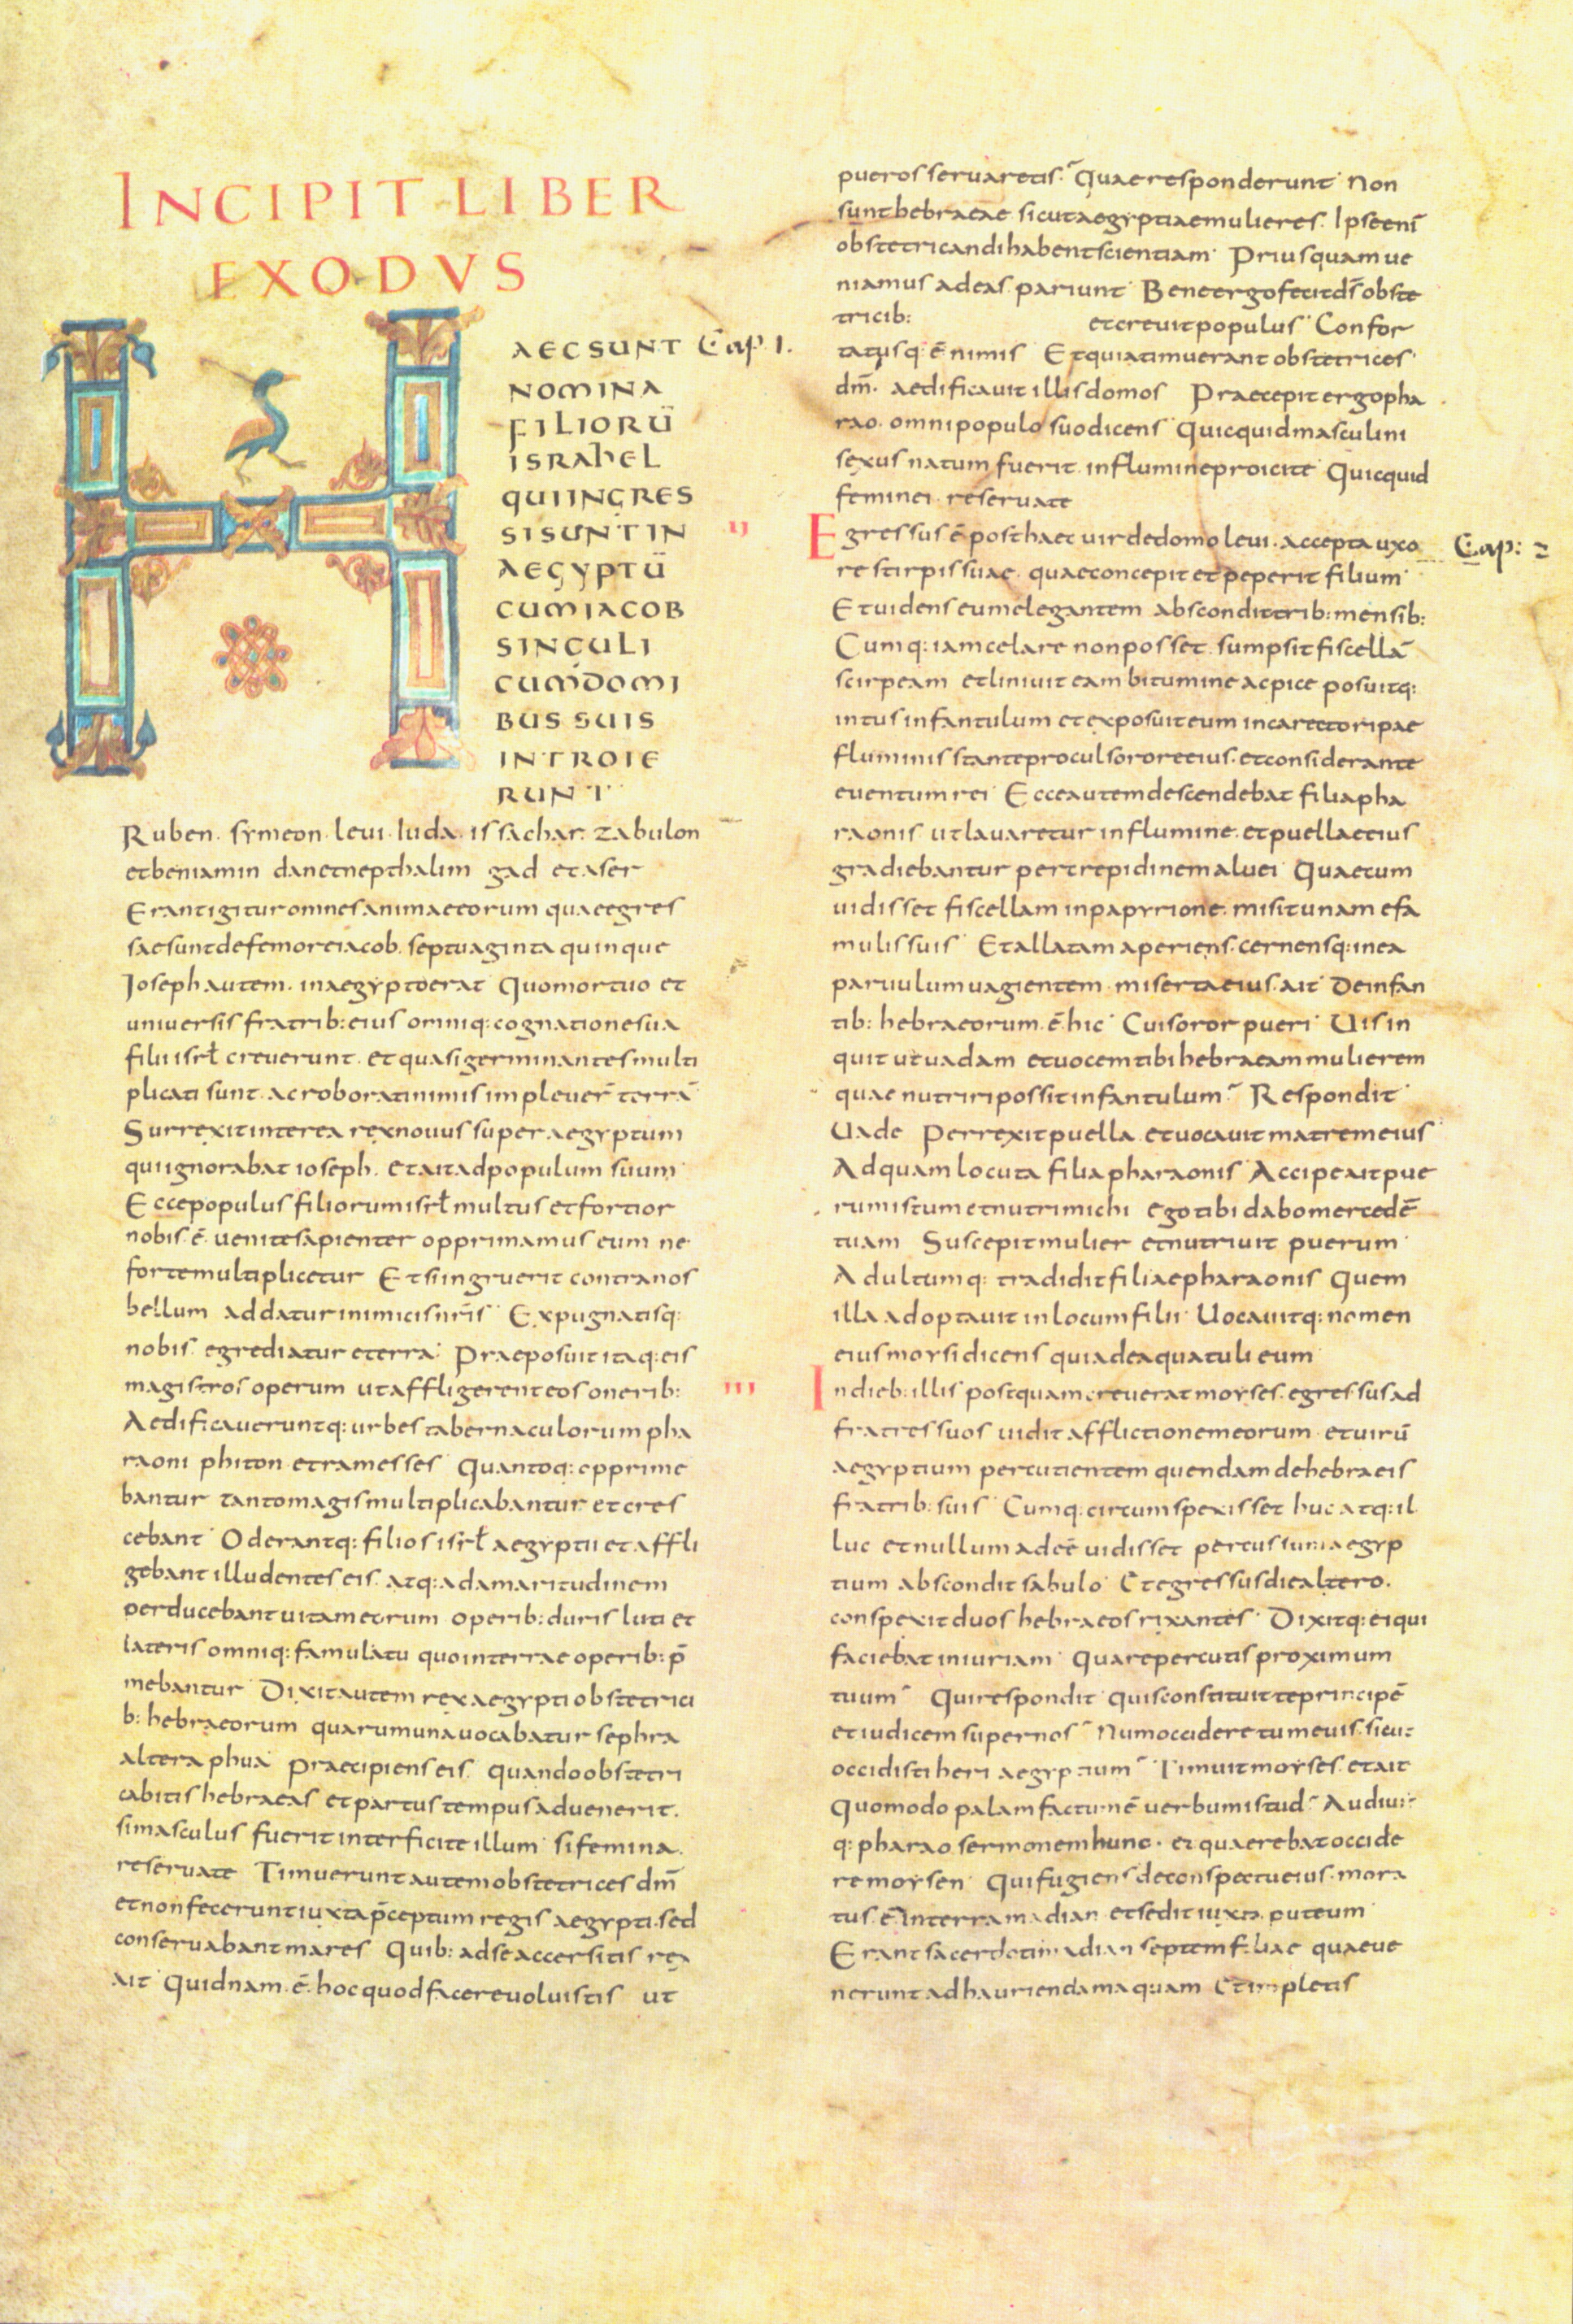 INCIPIT LIBER
EXODVS
HAEC SUNT Cap. 1.
NOMINA
FILIORŪ
ISRAHEL
QUI INGRES
SI SUNT IN
AEGYPTŪ
CUM IACOB
SINGULI
CUM DOMI
BUS SUIS
INTROIE
RUNT
Ruben. symeon. levi. Iuda. issachar. zabulon
et beniamin dan et nepthalim gad et aser
Erant igitur omnes animae eorum quae egres
sae sunt de femore iacob. septuaginta quinque
Ioseph autem. in aegypto erat Quo mortuo et
universis fratrib: eius omniq: cognatione sua
filii isrł creverunt. et quasi germinantes multi
plicati sunt. ac roborati nimis implever̄ terrā
Surrexit interea rex novus super aegyptum
qui ignorabat ioseph. et ait ad populum suum
Ecce populus filiorum isrł multus et fortior
nobis. ē. venite sapienter opprimamus eum ne
forte multiplicetur Et si ingruerit contra nos
bellum addatur inimicis nr̄is Expugnatisq:
nobis egrediatur e terra. Praeposuit itaq: eis
magistros operum ut affligerent eos onerib:
Aedificaveruntq: urbes tabernaculorum pha
raoni phiton et ramesses Quantoq: opprime
bantur tanto magis multiplicabantur et cres
cebant Oderantq: filios isrł aegyptii et affli
gebant illudentes eis. atq: ad amaritudinem
perducebant vitam eorum operib: duris luti et
lateris omniq: famulatu quo in terrae operib: p̄
mebantur Dixit autem rex aegypti obstetrici
b: hebraeorum quarum una vocabatur sephra
altera phua Praecipiens eis quando obstetri
cabitis hebraeas et partus tempus advenerit.
si masculus fuerit interficite illum si femina.
reservate Timuerunt autem obstetrices dm̄
et non fecerunt iuxta p̄ceptum regis aegypti. sed
conservabant mares Quib: ad se accersitis rex
ait Quidnam. ē. hoc quod facere voluistis ut
pueros servaretis. Quae responderunt Non
sunt hebraeae sicut aegyptiae mulieres. Ipse enī
obstetricandi habent scientiam Priusquam ve
niamus ad eas pariunt Bene ergo fecit ds̄ obste
tricib: et crevit populus Confor
tatusq: ē nimis Et quia timuerant obstetrices
dm̄. aedificavit illis domos Praecepit ergo pha
rao. omni populo suo dicens Quicquid masculini
sexus natum fuerit. in flumine proicite Quicquid
feminei. reservate
" Egressus ē post haec vir de domo levi. accepta uxo Cap: 2
re stirpis suae. quae concepit et peperit filium
Et videns eum elegantem abscondit trib: mensib:
Cumq: iam celare non posset. sumpsit fiscellā
scirpeam et linivit eam bitumine ac pice posuitq:
intus infantulum et exposuit eum in carecto ripae
fluminis stante procul sorore eius. et considerante
eventum rei Ecce autem descendebat filia pha
raonis ut lavaretur in flumine. et puellae eius
gradiebantur per trepidinem alvei Quae cum
vidisset fiscellam in papyrione. misit unam e fa
mulis suis Et allatam aperiens. cernensq: in ea
parvulum vagientem. miserta eius. ait De infan
tib: hebraeorum. ē hic Cui soror pueri Vis in
quit ut vadam et vocem tibi hebraeam mulierem
quae nutriri possit infantulum Respondit
Vade Perrexit puella. et vocavit matrem eius
Ad quam locuta filia pharaonis Accipe ait pue
rum istum et nutri michi ego tibi dabo mercedē
tuam Suscepit mulier et nutrivit puerum
Adultumq: tradidit filiae pharaonis Quem
illa adoptavit in locum filii Vocavitq: nomen
eius moysi dicens quia de aqua tuli eum
''' In dieb: illis postquam creverat moyses. egressus ad
fratres suos vidit afflictionem eorum et virū
aegyptium percutientem quendam de hebraeis
fratrib: suis Cumq: circumspexisset huc atq: il
luc et nullum adeē vidisset percussum aegyp
tium abscondit sabulo Et egressus die altero.
conspexit duos hebraeos rixantes Dixitq: ei qui
faciebat iniuriam Quare percutis proximum
tuum Qui respondit Quis constituit te principē
et iudicem super nos Num occidere tu me vis. sicut
occidisti heri aegyptium Timuit moyses. et ait
Quomodo palam factum ē verbum istud Audivit
q: pharao sermonem hunc. et quaerebat occide
re moysen Qui fugiens de conspectu eius. mora
tus. ē. in terra madian et sedit iuxta puteum
Erant sacerdoti madian septem filiae quae ve
nerunt ad hauriendam aquam Et impletis